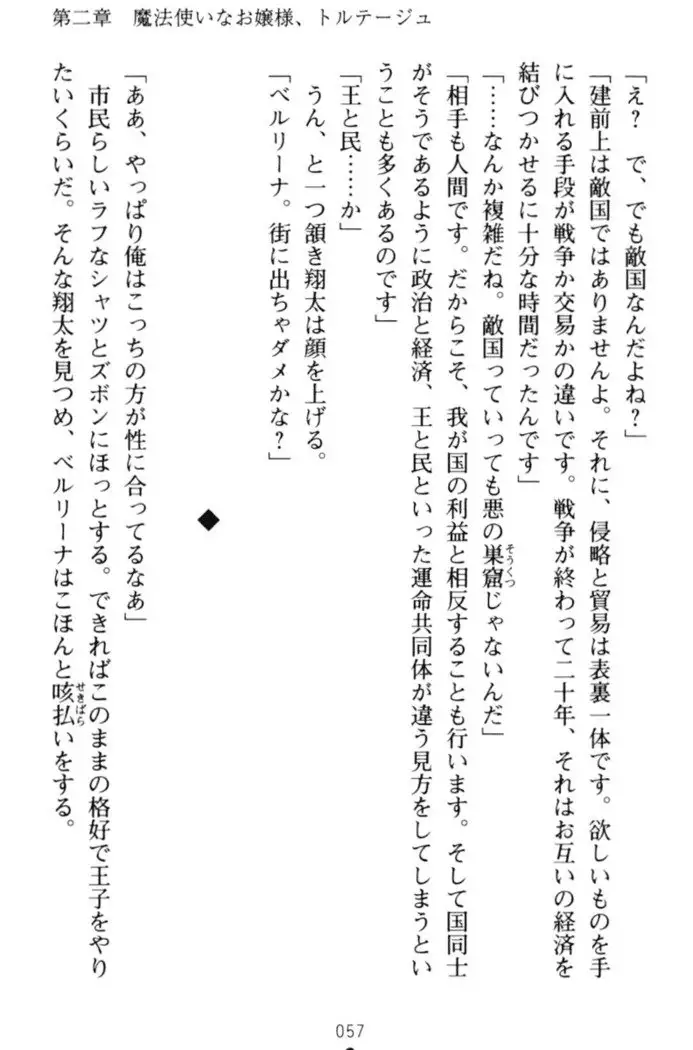 第二章　魔法使いなお嬢様、トルテージュ
「え？　で、でも敵国なんだよね？」
「建前上は敵国ではありませんよ。それに、侵略と貿易は表裏一体です。欲しいものを手
に入れる手段が戦争か交易かの違いです。戦争が終わって二十年、それはお互いの経済を
結びつかせるに十分な時間だったんです」
「……なんか複雑だね。敵国っていっても悪の巣窟じゃないんだ」
そうくつ
「相手も人間です。だからこそ、我が国の利益と相反することも行います。そして国同士
がそうであるように政治と経済、王と民といった運命共同体が違う見方をしてしまうとい
うことも多くあるのです」
「王と民……か」
うん、と一つ頷き翔太は顔を上げる。
「ベルリーナ。街に出ちゃダメかな？」
◆
「ああ、やっぱり俺はこっちの方が性に合ってるなあ」
市民らしいラフなシャツとズボンにほっとする。できればこのままの格好で王子をやり
たいくらいだ。そんな翔太を見つめ、ベルリーナはこほんと咳払いをする。
せきばら
057